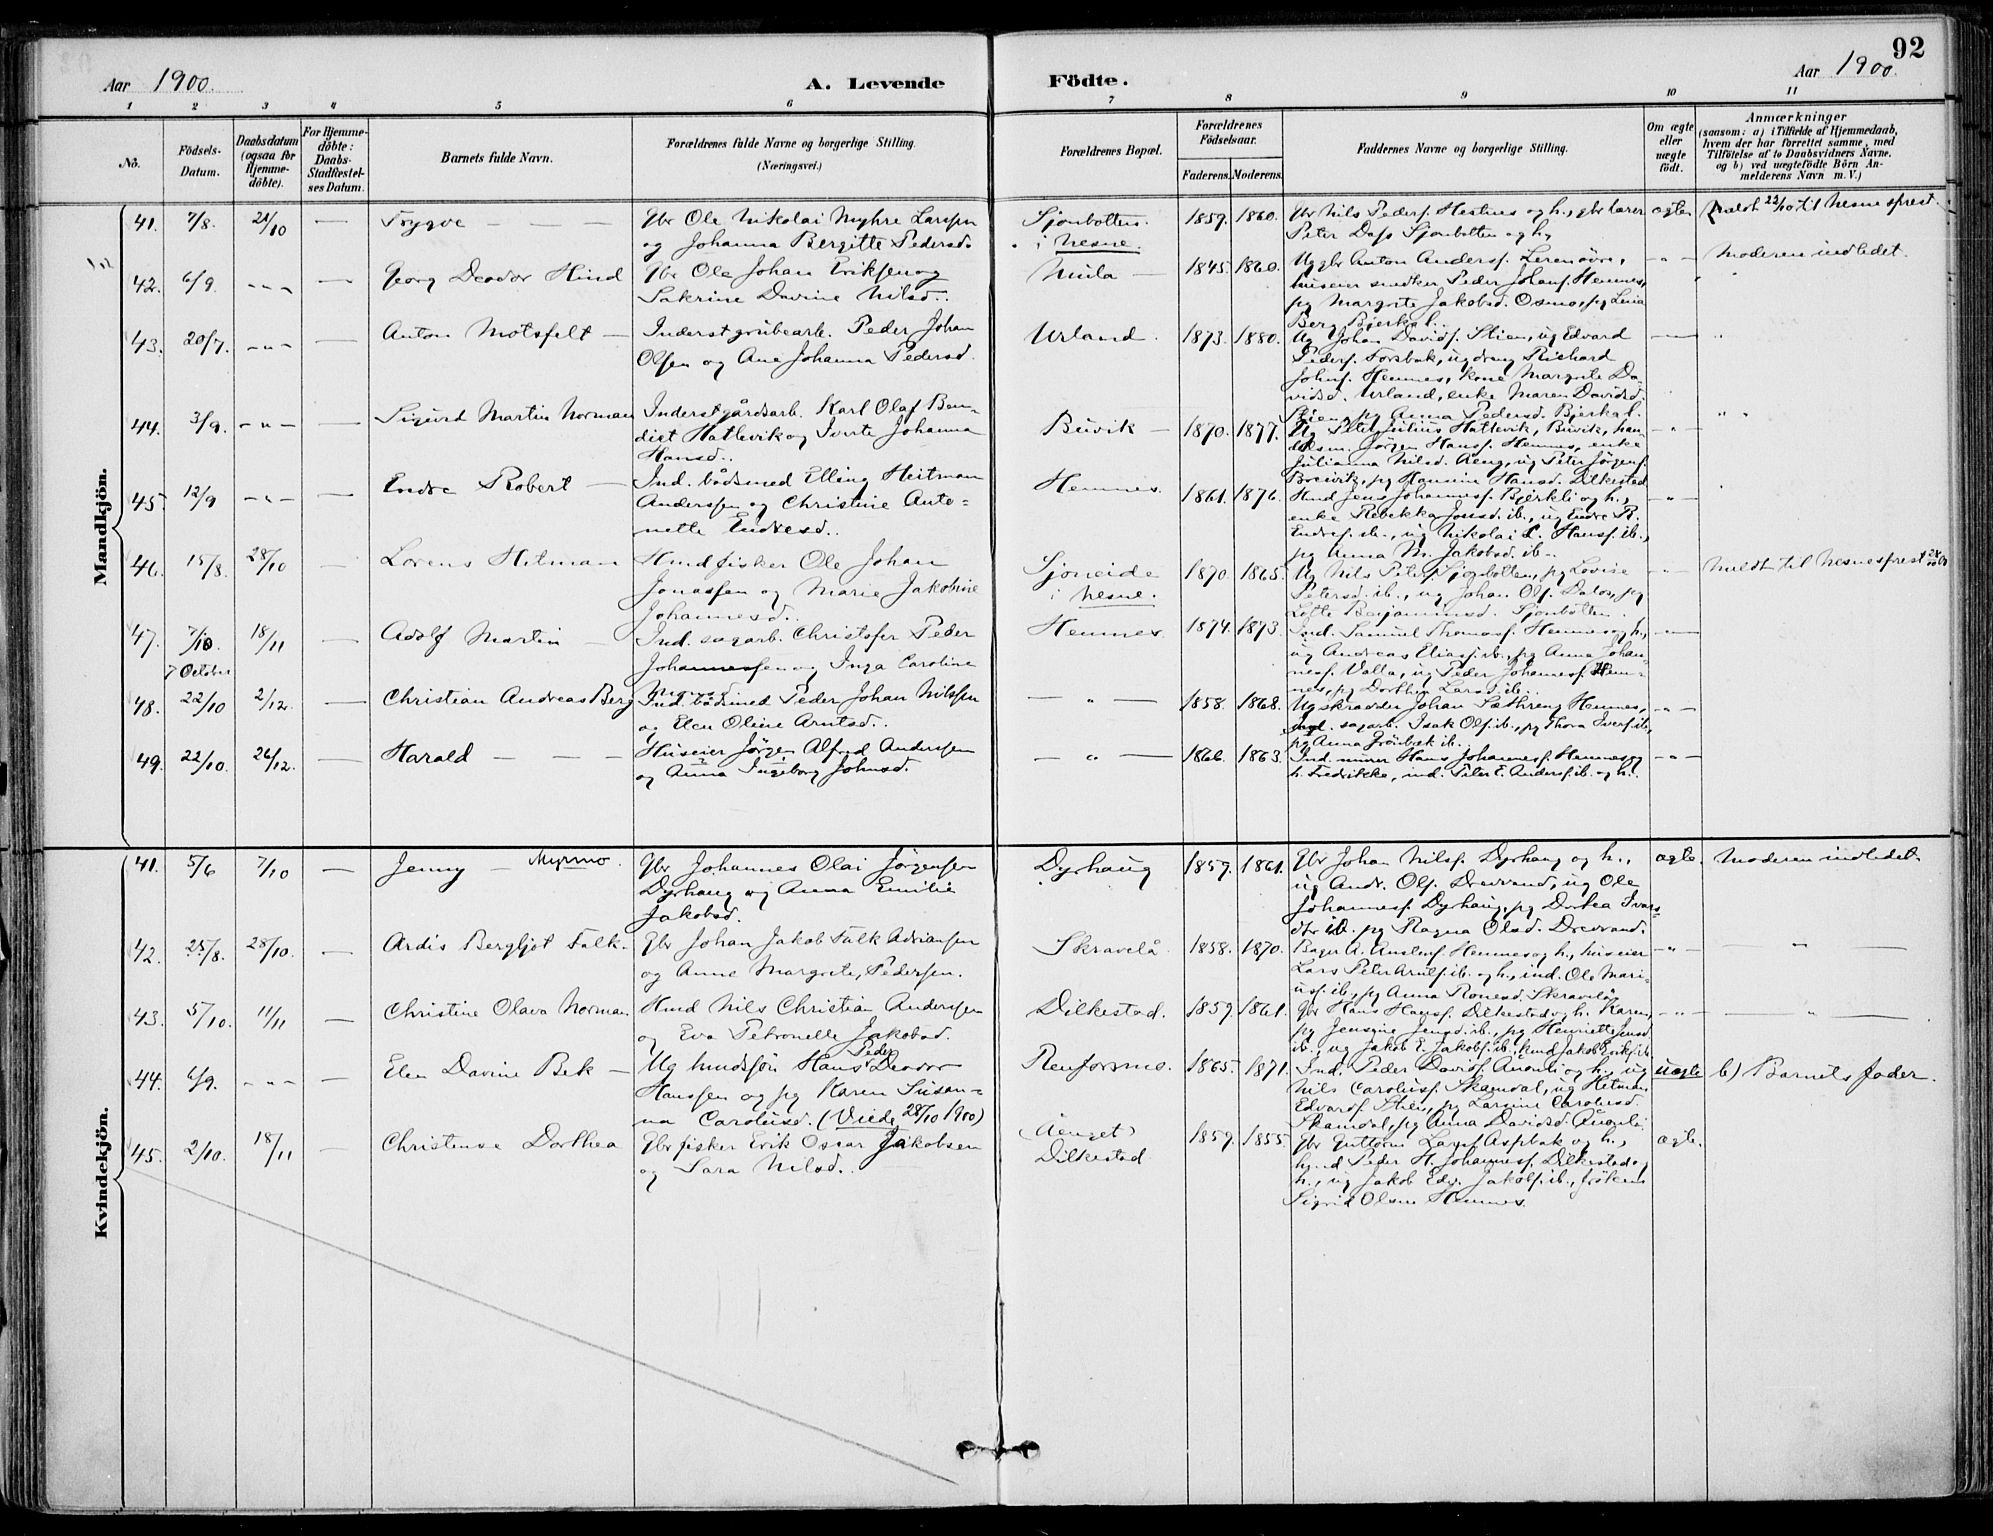 92
Aar 1900.
A. Levende Födte.
Aar 1900.
1 2 3 4 5 6 7 8 9 10 11
Nö.
Födsels-Datum.
Daabsdatum (ogsaa för Hjemme-döbte).
For Hjemme-döbte: Daabs-Stadfæstel-ses Datum.
Barnets fulde Navn.
Forældrenes fulde Navne og borgerlige Stilling.
(Næringsvei.)
Forældrenes Bopæl.
Forældrenes Födselsaar.
Faderens. Moderens.
Faddernes Navne og borgerlige Stilling.
Om ægte eller uægte födt.
Anmærkninger
(saasom: a) i Tilfælde af Hjemmedaab,
hvem der har forrettet samme, med
Tilföielse af to Daabsvidners Navne,
og b) ved uægtefödte Börn An-
melderens Navn m. V.)
Mandkjön.
41. 7/8. 21/10 — Trygve — — — Gbr Ole Nikolai Myhre Larssen
og Johanna Bergitte Pedersd.
Sjonbotten
i Nesne.
1859. 1860. Gbr Nils Peders. Hestnes og h., gbr lærer
Peter Dass Sjonbotten og h.
ægte. Meldt 23/10 til Nesne sprest.
42. 6/9. -"- — Georg Deodor Hind Gbr Ole Johan Eriksen og
Sakrine Davine Nilsd.
Mula — 1845. 1860. Ug gbr Anton Anders. Leremovre,
huseier snedker Peder Johans. Hemnes,
pg Margrete Jakobsd. Osmo, pg Lina
Berg Bjerkal.
-"- Moderen indledet.
43. 20/7. -"- — Anton Motsfelt — Inderst grubearb. Peder Johan
Olsen og Ane Johanna Pedersd.
Urland. 1873. 1880. Ug Johan Davids. Stien, ug Edvard
Peders. Forsbak, ug dreng Richard
Johns. Hemnes, kone Margrete Da-
vidsd. Urland, enke Maren Davidsd.
Stien, pg Anna Pedersd. Bjerkal.
—"— "
44. 3/9. -"- — Sigurd Martin Norman Inderst gårdsarb. Karl Olaf Ben-
digt Hattevik og Iverte Johanna
Hansd.
Buvik — 1870. 1877. Ug Peter Julius Hattevik, Buvik, han-
delsm. Jørgen Hans. Hemnes, enke
Julianna Nilsd. Aeng, ug Peter Jørgens.
Breivik, pg Hansine Hansd. Dilkestad
-"- " "
45. 12/9 -"- — Endre Robert — Ind. bådsmed Elling Heitman
Anderssen og Christine Anto-
nette Endresd.
Hemnes. 1861. 1876. Hmd Jens Johannes. Bjerkli og h.,
enke Rebekka Jonsd. ib., ug Endre R.
Endres. ib., ug Nikolai C. Hans. ib.,
pg Anna M. Jakobsd. ib.
-"- "
46. 15/8. 28/10 — Lorens Hitman Hmd fisker Ole Johan
Jonassen og Marie Jakobine
Johannesd.
Sjoneide
i Nesne.
1870. 1865. Ug Nils Peters. Sjonbotten, pg Lovise
Petersd. ib., ug Johan Ols. Dalos, pg
Lotte Benjaminsd. Sjonbotten
-"- Meldt til Nesnesprest 28/10 00
47. 7/10. 18/11 — Adolf Martin — Ind. sagarb. Christofer Peder
7 October
Johannessen og Inga Caroline
Hemnes. 1874. 1873. Ind. Samuel Thomas. Hemnes og h.,
ug Andreas Elias. ib., pg Anna Johan-
nesd. Valla, ug Peder Johannes. Hem-
nes, pg Dorthea Larsd. ib.
—"—
48. 22/10 2/12. — Christian Andreas Berg Ind. bådsmed Peder Johan Nilssen
og Elen Oline Arntsd.
— " — 1858. 1868. Ug skrædder Johan Sæthreng Hemnes,
Ind. sagarb. Isak Ols. ib., pg Thora Ivers. ib,
pg Anna Grönbæk ib.
-"-
49. 22/10. 26/12. — Harald — — — Huseier Jørgen Alfred Anderssen
og Anna Ingeborg Johnsd.
— " — 1866. 1863. Ind. murer Hans Johannes. Hemnes og
h. Fredrikke, ind. Peter E. Anders. ib. og h.
-"-
Kvindekjön.
41. 5/6 7/10 — Jenny — Myrmo. Gbr Johannes Olai Jørgensen
Dyrhaug og Anna Emilie
Jakobsd.
Dyrhaug 1859. 1861. Gbr Johan Nils. Dyrhaug og h.,
ug Andr. Ols. Drevvand, ug Ole
Johannes. Dyrhaug, pg Dorthea Ivars-
dtr ib. pg Ragna Olsd. Drevvand.
ægte. Moderen indledet.
42. 25/8. 28/10. — Ardis Bergljot Falk. Gbr Johan Jakob Falk Adriansen
og Anne Margrete Pedersen.
Skravelå 1858. 1870. Bager A. Anslens. Hemnes og h., huseier
Lars Peter Arnts. ib. og h., ind. Ole Mari-
us. ib., pg Anna Ronesd. Skravelå
-"- — " —
43. 5/10. 11/11 — Christine Olava Norman Hmd Nils Christian Anderssen
og Eva Petronelle Jakobsd.
Dilkestad. 1859. 1861. Gbr Hans Hans. Dilkestad og h. Karen,
pg Jensine Jensd. ib., pg Henriette Jensd
ib., ug Jakob E. Jakobs. ib., hmd Jakob Eriks. ib
-"- — " —
44. 6/9. -"- — Elen Davine Bek — Ug hmdssön Hans Peder Deodor
Hanssen og pg Karen Susan-
na Carolusd. (Viede 28/10 1900)
Renforsmo. 1865. 1871. Ind. Peder Davids. Auonli og h., ug
Nils Carolus. Skamdal, ug Hetman
Edvards. Stien, pg Larsine Carolusd.
Skamdal, pg Anna Davidsd. Auonli.
uægte b) Barnets fader.
45. 2/10. 18/11 — Christense Dorthea Gbr fisker Erik Oscar Jakobsen
og Sara Nilsd.
(Aenget)
Dilkestad
1859. 1855. Gbr Guttorm Lars. Aspbak og h.,
hmd Peder H. Johannes. Dilkestad og
h., ug Jakob Edv. Jakobs. ib., fröken
Sigrid Olsen Hemnes.
ægte.